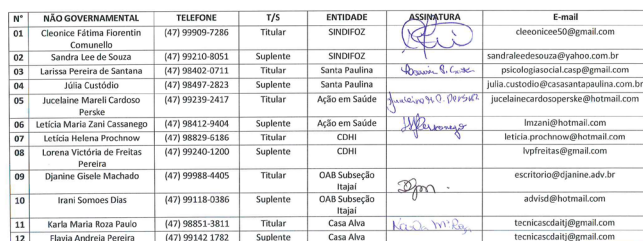 N° NÃO GOVERNAMENTAL TELEFONE T/S ENTIDADE ASSINATURA E-mail
01 Cleonice Fátima Fiorentin Comunello (47) 99909-7286 Titular SINDIFOZ cleeonicee50@gmail.com
02 Sandra Lee de Souza (47) 99210-8051 Suplente SINDIFOZ sandraleedesouza@yahoo.com.br
03 Larissa Pereira de Santana (47) 98402-0711 Titular Santa Paulina psicologiasocial.casp@gmail.com
04 Júlia Custódio (47) 98497-2823 Suplente Santa Paulina julia.custodio@casasantapaulina.com.br
05 Jucelaine Mareli Cardoso Perske (47) 99239-2417 Titular Ação em Saúde jucelainecardosoperske@hotmail.com
06 Letícia Maria Zani Cassanego (47) 98412-9404 Suplente Ação em Saúde lmzani@hotmail.com
07 Letícia Helena Prochnow (47) 98829-6186 Titular CDHI leticia.prochnow@hotmail.com
08 Lorena Victória de Freitas Pereira (47) 99240-1200 Suplente CDHI lvpfreitas@gmail.com
09 Djanine Gisele Machado (47) 99988-4405 Titular OAB Subseção Itajaí escritorio@djanine.adv.br
10 Irani Somoes Dias (47) 99118-0386 Suplente OAB Subseção Itajaí advisd@hotmail.com
11 Karla Maria Roza Paulo (47) 98851-3811 Titular Casa Alva tecnicascdaitj@gmail.com
12 Flavia Andreia Pereira (47) 99142 1782 Suplente Casa Alva tecnicascdaitj@gmail.com